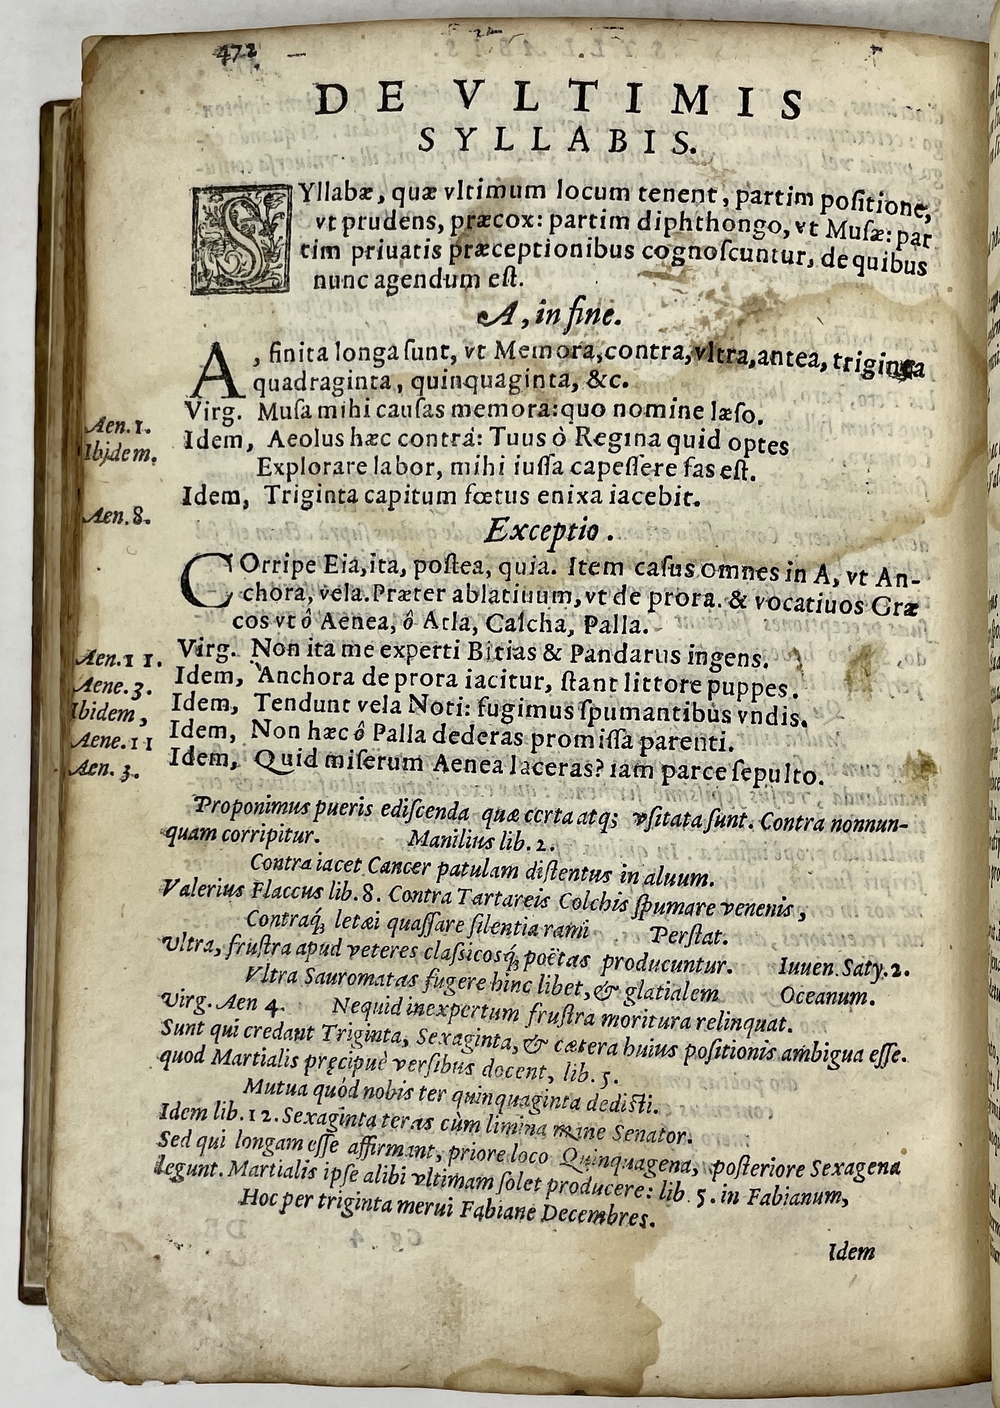 472
DE VLTIMIS
SYLLABIS.
SYllabæ, quæ vltimum locum tenent, partim poſitione,
vt prudens, præcox: partim diphthongo, vt Muſæ: par
tim priuatis præceptionibus cognoſcuntur, de quibus
nunc agendum eſt.
A, in fine.
A, finita longa ſunt, vt Memora, contra, vltra, antea, triginta
quadraginta, quinquaginta, &c.
Virg. Muſa mihi cauſas memora: quo nomine læſo.
Aen. 1.
Idem, Aeolus hæc contrá: Tuus ô Regina quid optes
Ibidem.
Explorare labor, mihi iuſſa capeſſere fas eſt.
Idem, Triginta capitum fœtus enixa iacebit.
Aen. 8.
Exceptio.
COrripe Eia, ita, poſtea, quia. Item caſus omnes in A, vt An-
chora, vela. Præter ablatiuum, vt de prora. & vocatiuos Græ
cos vt ô Aenea, ô Atla, Calcha, Palla.
Virg. Non ita me experti Bitias & Pandarus ingens.
Aen. 11.
Idem, Anchora de prora iacitur, ſtant littore puppes.
Aene. 3.
Idem, Tendunt vela Noti: fugimus ſpumantibus vndis.
Ibidem,
Idem, Non hæc ô Palla dederas promiſſa parenti.
Aene. 11
Idem, Quid miſerum Aenea laceras? iam parce ſepulto.
Aen. 3.
Proponimus pueris ediſcenda quæ certa atq; vſitata ſunt. Contra nonnun-
quam corripitur. Manilius lib. 2.
Contra iacet Cancer patulam diſtentus in aluum.
Valerius Flaccus lib. 8. Contra Tartareis Colchis ſpumare venenis,
Contraq́; letæi quaſſare ſilentia rami Perſtat.
Vltra, fruſtra apud veteres claſſicosq́; poëtas producuntur. Iuuen. Saty. 2.
Vltra Sauromatas fugere hinc libet, & glatialem Oceanum.
Virg. Aen 4. Nequid inexpertum fruſtra moritura relinquat.
Sunt qui credant Triginta, Sexaginta, & cætera huius poſitionis ambigua eſſe.
quod Martialis pręcipuè verſibus docent, lib. 5.
Mutua quód nobis ter quinquaginta dediſti.
Idem lib. 12. Sexaginta teras cùm limina mane Senator.
Sed qui longam eſſe affirmant, priore loco Quinquagena, poſteriore Sexagena
legunt. Martialis ipſe alibi vltimam ſolet producere: lib. 5. in Fabianum,
Hoc per triginta merui Fabiane Decembres.
Idem